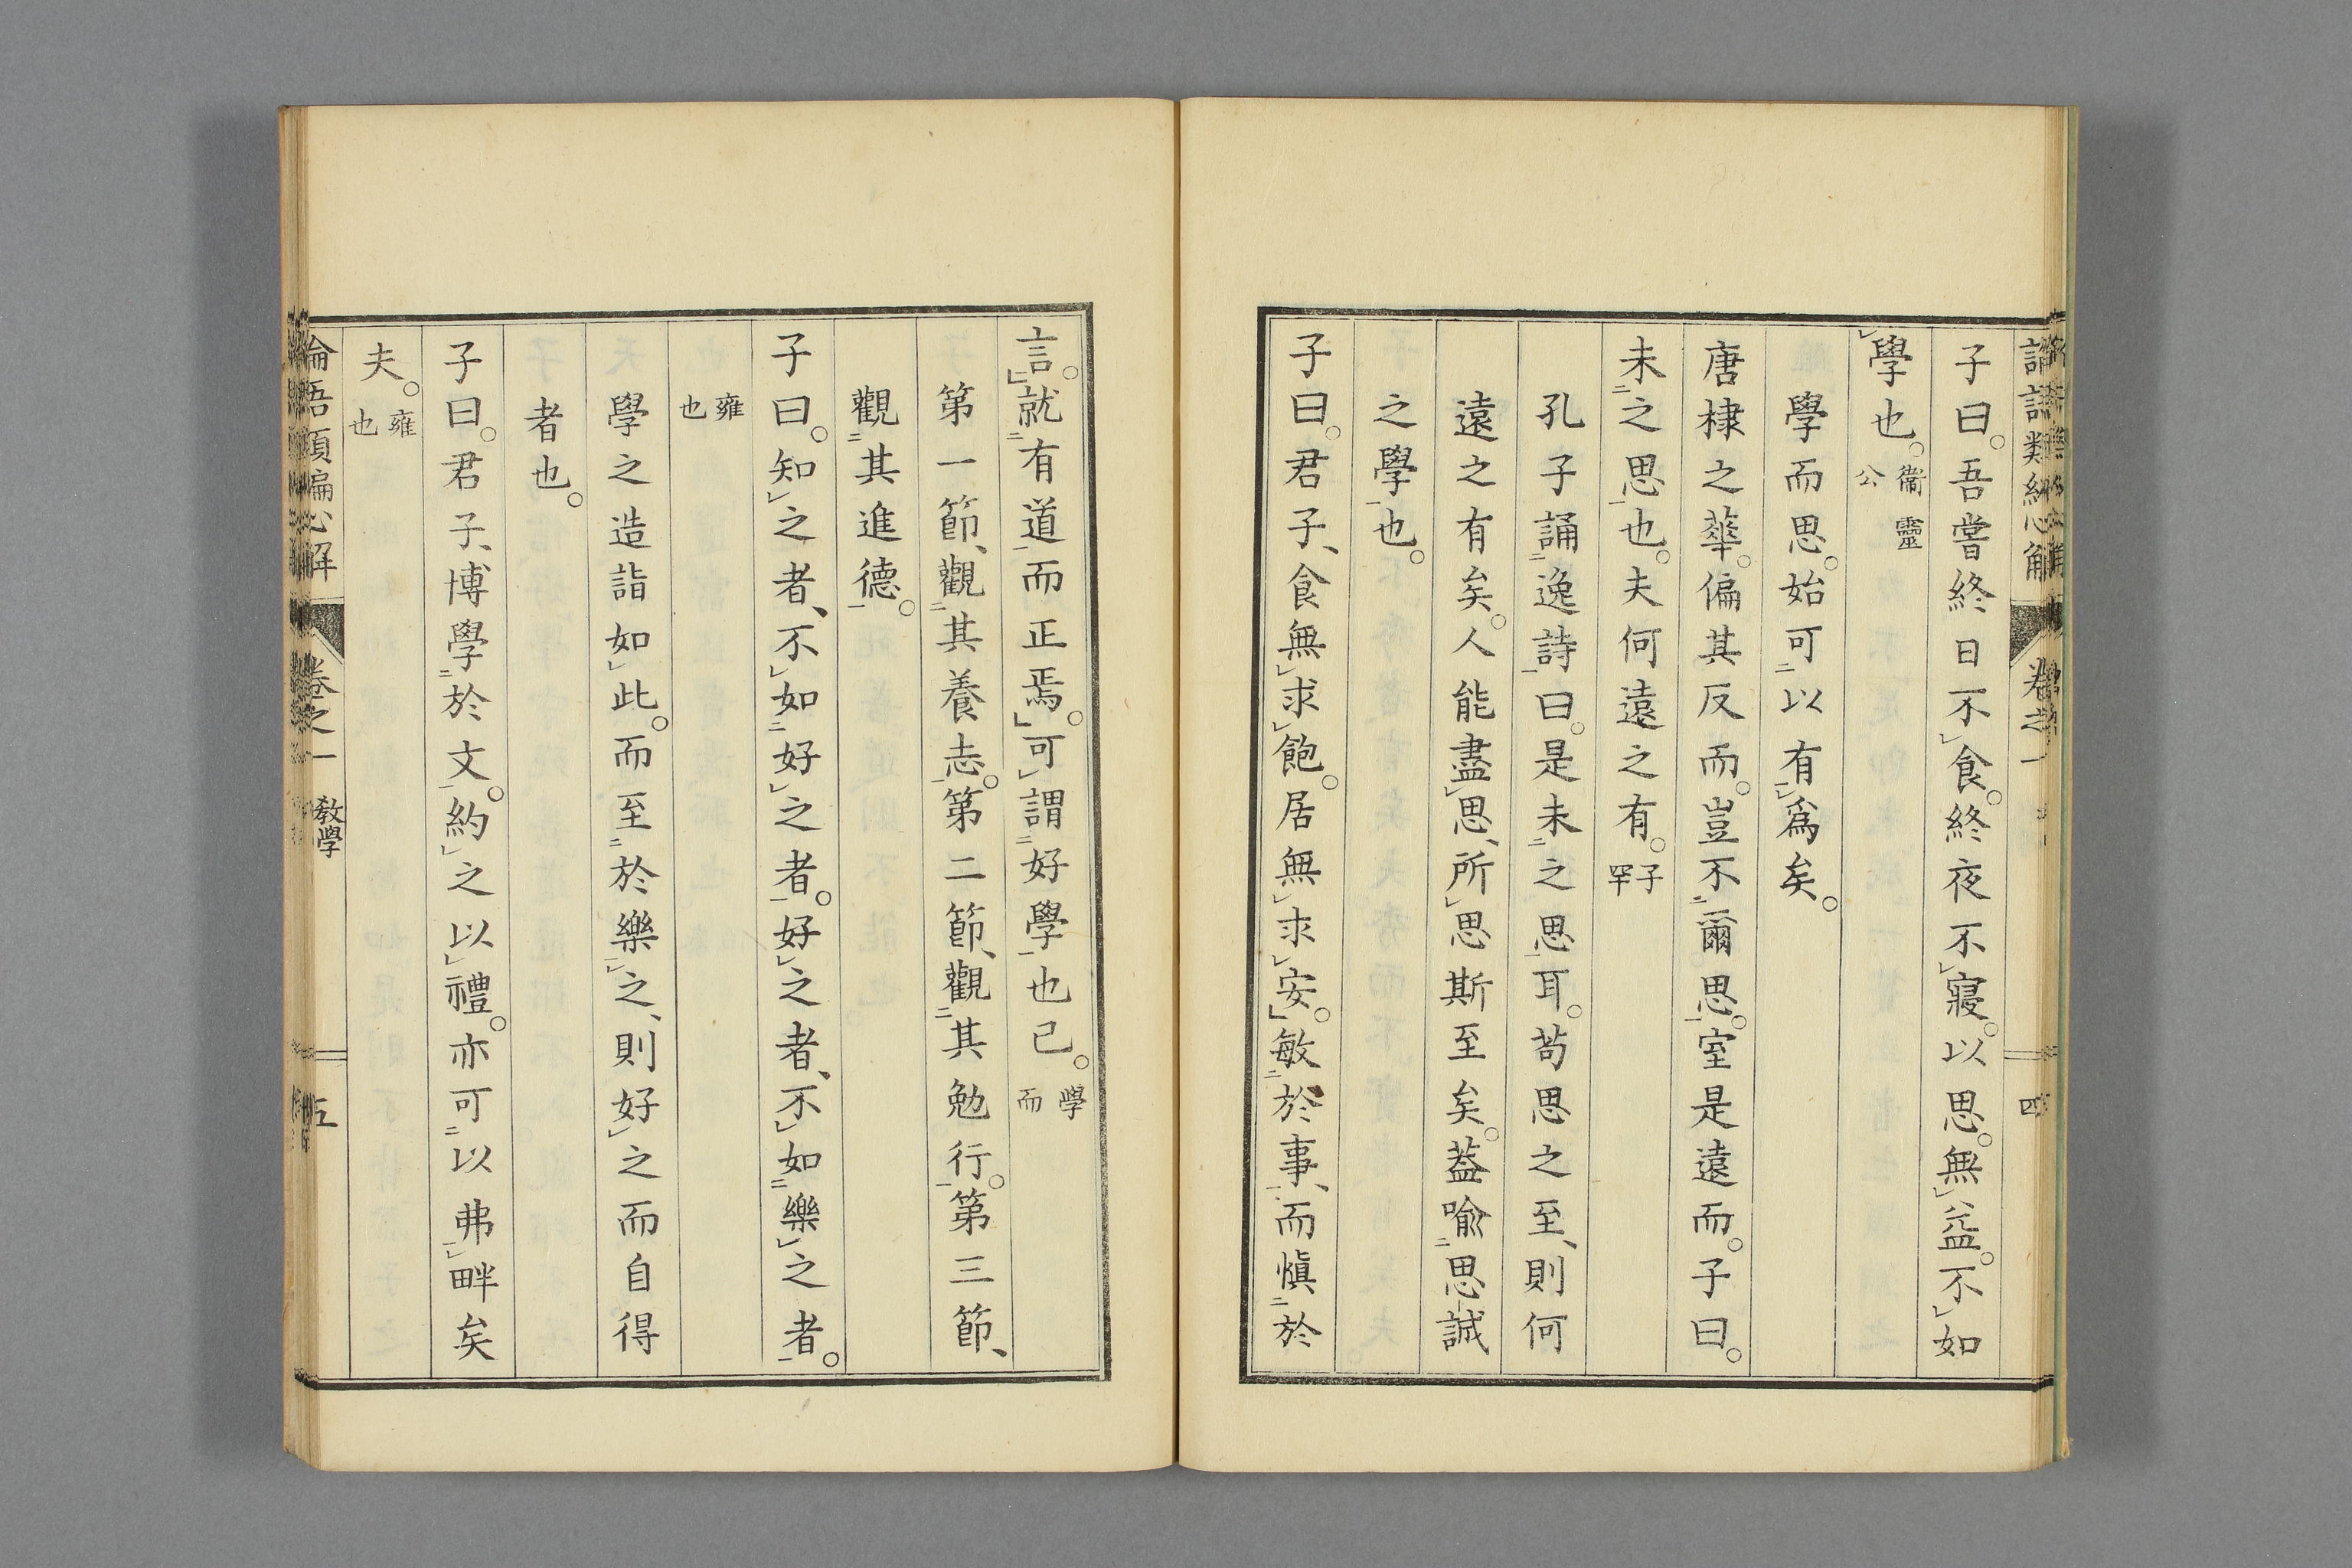 子曰。吾嘗終日不食。終夜不寢。以思。無益。不如
學也。衞靈公
學而思。始可以有爲矣。
唐棣之華。偏其反而。豈不爾思。室是遠而。子曰。
未之思也。夫何遠之有。子罕
孔子誦逸詩曰。是未之思耳。苟思之至、則何
遠之有矣。人能盡思、所思斯至矣。葢喩思誠
之學也。
子曰。君子、食無求飽。居無求安。敏於事、而愼於
言。就有道而正焉。可謂好學也已。學而
第一節、觀其養志。第二節、觀其勉行。第三節、
觀其進德。
子曰。知之者、不如好之者。好之者、不如樂之者。
雍也
學之造詣如此。而至於樂之、則好之而自得
者也。
子曰。君子、博學於文。約之以禮。亦可以弗畔矣
夫。雍也
卷之一 敎學 五